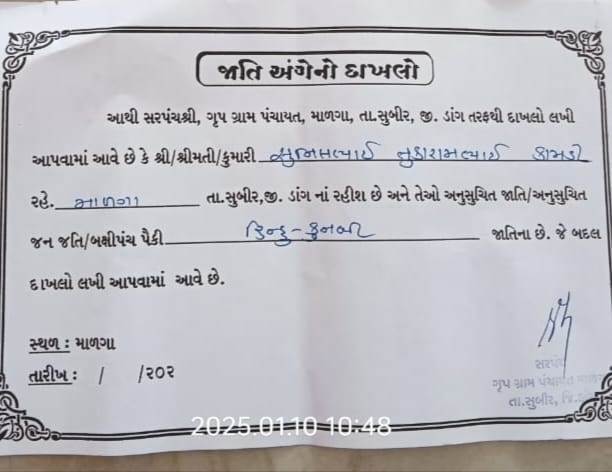 જાતિ અંગેનો દાખલો
આથી સરપંચશ્રી, ગૃપ ગ્રામ પંચાયત, માળગા, તા.સુબીર, જી. ડાંગ તરફથી દાખલો લખી
આપવામાં આવે છે કે શ્રી/શ્રીમતી/કુમારી સુનિલભાઈ તુકારામભાઈ કામડી
રહે. માળગા તા.સુબીર,જી. ડાંગ નાં રહીશ છે અને તેઓ અનુસુચિત જાતિ/અનુસુચિત
જન જતિ/બક્ષીપંચ પૈકી હિન્દુ-કુનબી જાતિના છે. જે બદલ
દાખલો લખી આપવામાં આવે છે.
સ્થળ : માળગા
તારીખ : / /૨૦૨
સરપંચ
ગૃપ ગ્રામ પંચાયત માળ
તા.સુબીર, જિ.
2025.01.10 10:48